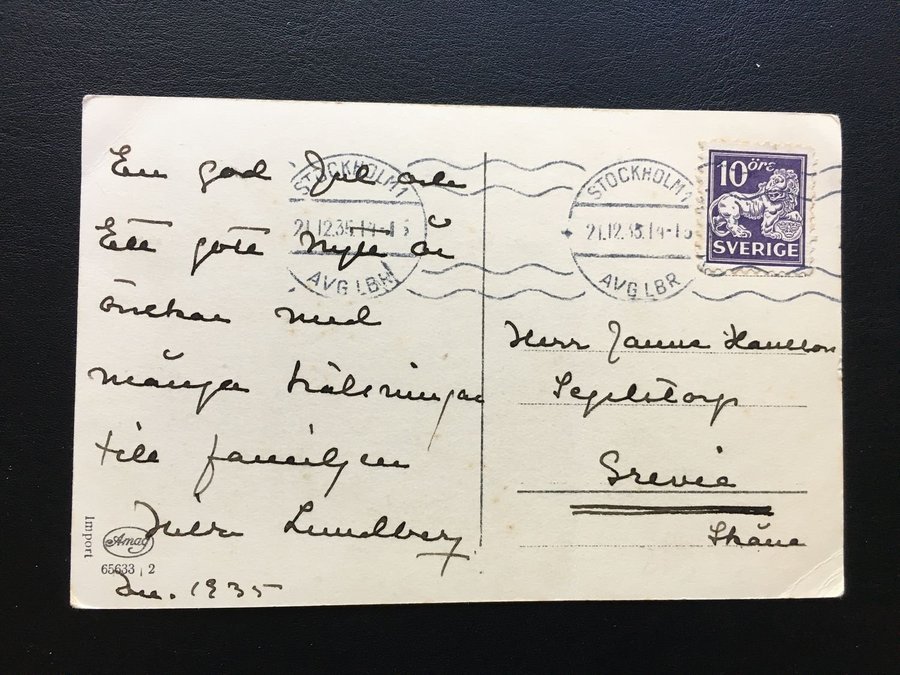 En god Jul och
Ett gott Nytt år
önskar med
många hälsningar
till familjen
Lundberg
1935
Import
Amag
65633 2
STOCKHOLM 1
21.12.35.14-15
AVG LBR
STOCKHOLM 1
21.12.35.14-15
AVG LBR
10 öre
SVERIGE
Herr Janne Hansson
Segelstorp
Grevie
Skåne